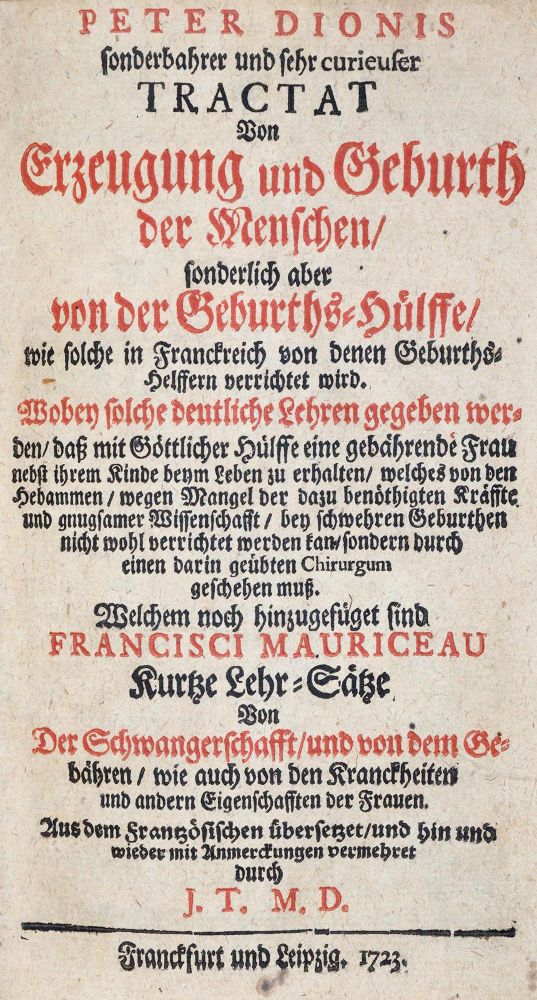 PETER DIONIS
sonderbahrer und sehr curieuser
TRACTAT
Von
Erzeugung und Geburth
der Menschen/
sonderlich aber
von der Geburths-Hülffe/
wie solche in Franckreich von denen Geburths-
Helffern verrichtet wird.
Wobey solche deutliche Lehren gegeben wer-
den/ daß mit Göttlicher Hülffe eine gebährende Frau
nebst ihrem Kinde beym Leben zu erhalten/ welches von den
Hebammen/ wegen Mangel der dazu benöthigten Kräffte
und gnugsamer Wissenschafft/ bey schwehren Geburthen
nicht wohl verrichtet werden kan/ sondern durch
einen darin geübten Chirurgum
geschehen muß.
Welchem noch hinzugefüget sind
FRANCISCI MAURICEAU
Kurtze Lehr-Sätze
Von
Der Schwangerschafft/ und von dem Ge-
bähren/ wie auch von den Kranckheiten
und andern Eigenschafften der Frauen.
Aus dem Frantzösischen übersetzet/ und hin und
wieder mit Anmerckungen vermehret
durch
J. T. M. D.
Franckfurt und Leipzig. 1723.